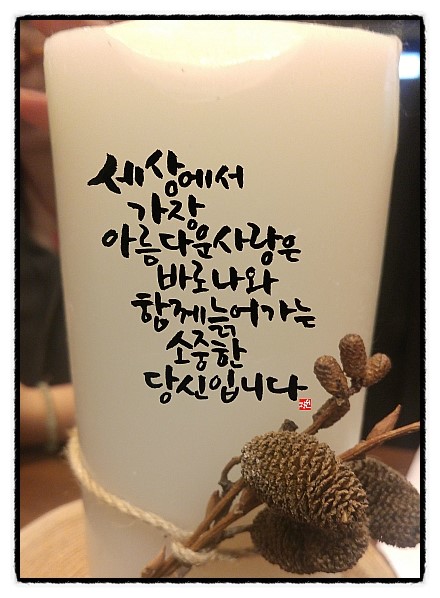 세상에서
가장
아름다운사랑은
바로나와
함께늙어가는
소중한
당신입니다